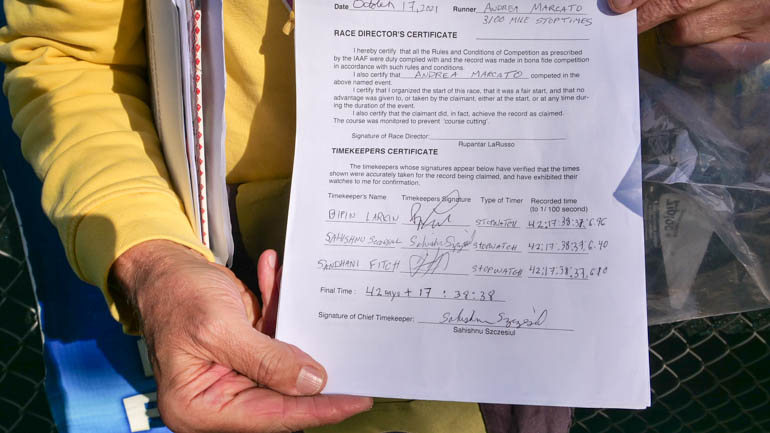 Date October 17, 2021 Runner Andrea Marcato
3100 MILE STOP TIMES
RACE DIRECTOR'S CERTIFICATE
I hereby certify that all the Rules and Conditions of Competition as prescribed
by the IAAF were duly complied with and the record was made in bona fide competition
in accordance with such rules and conditions.
I also certify that ANDREA MARCATO competed in the
above named event.
I certify that I organized the start of this race, that it was a fair start, and that no
advantage was given to, or taken by the claimant, either at the start, or at any time dur-
ing the duration of the event.
I also certify that the claimant did, in fact, achieve the record as claimed.
The course was monitored to prevent 'course cutting'.
Signature of Race Director:
Rupantar LaRusso
TIMEKEEPERS CERTIFICATE
The timekeepers whose signatures appear below have verified that the times
shown were accurately taken for the record being claimed, and have exhibited their
watches to me for confirmation.
Timekeeper's Name Timekeepers Signature Type of Timer Recorded time
(to 1/100 second)
BIPIN LARKIN STOPWATCH
SAHISHNU Szczesiul Sahishnu Szczesiul STOPWATCH
SANDHANI FITCH STOPWATCH
Final Time: 42 days + 17 : 38:38
Signature of Chief Timekeeper: Sahishnu Szczesiul
Sahishnu Szczesiul